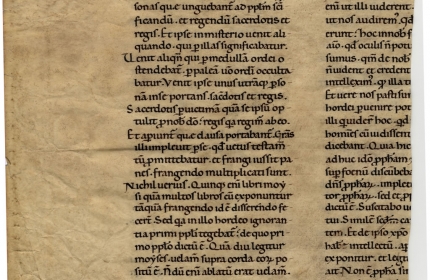 sonas que unguebantur ad pplm scī
ficandū. et regendū sacerdotis et
regis. Et ipse in misterio uenit ali
quando. qui p illas significabatur.
Uenit aliqn̄ qui p medullā ordei o
stendebat. p paleā uo ordi occulta
batur. Venit ipse unus utraq; pso
nā in se portans. sacdotis et regis.
Sacerdotis p uictimā quā se ipsū op
tulit p nob dō: regis qa regim ab eo.
Et apiunt que clausa portabant. Grās
illi impleuit p se. qd uetus testam
tū pmittebatur. et frangi iussit pa
nes. frangendo multiplicati sunt.
Nichil uerius. Quinq; enī libri moy
si quā multos libros cū exponuntur
tāquā frangendo idē differendo fe
cert. Sed qa in illo hordeo ignoran
tia primi ppli tegebat: de quo pri
mo pplo dictū ē. Quā diu legitur
moyses. uelam supra corda eor po
sitū ē. Ndū enī ablatū erat uelam.
enī ut illi uiderent.
ut nos audirem qd
erunt: hoc innob f
auo. qd oculis n potui
sumus. qm de nob
nuident et credent
intellexit. et exposu
Et uere nos pastisum
hordei puenire pot
illi quidē hoc. qd
homines cū uidissent
dicebant. Quia hic
ad huc idō pphām
sup foenū discūbebe
dns ppharz. implecto
tor ppharz. sed et p
dictū ē. Suscitabo u
tū. Similē sedm ca
tem. Et ut ipse expo
hab& intellectū. ap
exponitur. et legit